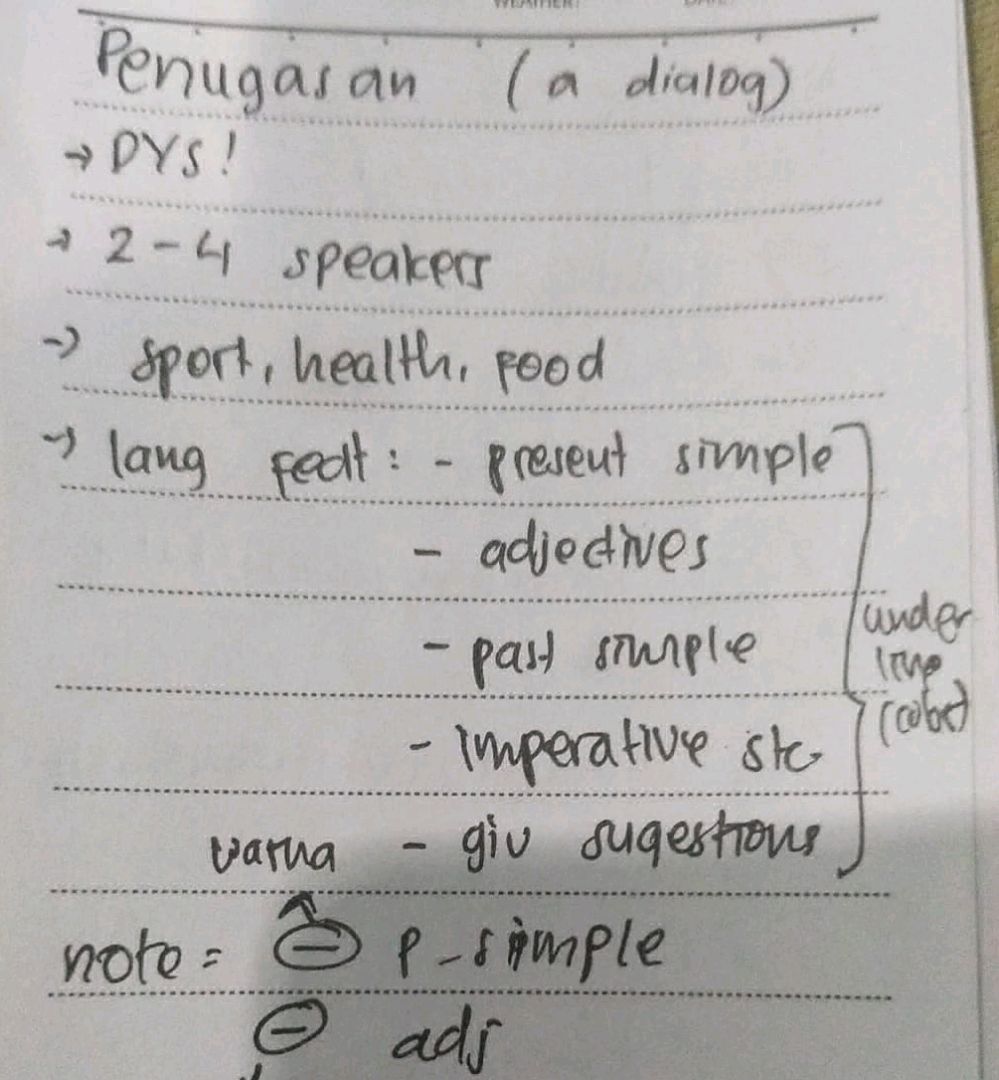 WEATHER: DATE:
Penugasan (a dialog)
→ DYS!
→ 2-4 speakers
→ sport, health, food
→ lang feat: - present simple
- adjectives
- past simple
under
line
(color)
- imperative stc.
warna - giv sugestions
note = ⊖ p-simple
⊖ adj